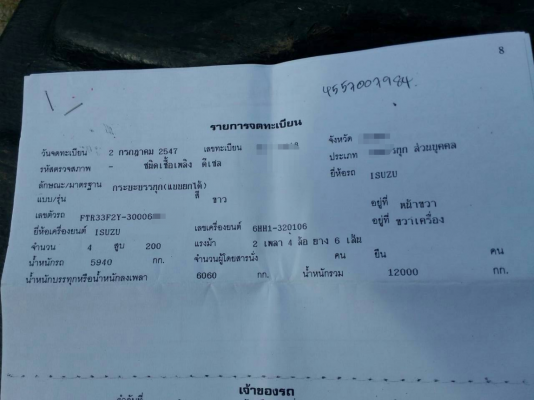 8
4557007984
รายการจดทะเบียน
วันจดทะเบียน 2 กรกฎาคม 2547 เลขทะเบียน จังหวัด
รหัสตรวจสภาพ - ชนิดเชื้อเพลิง ดีเซล ประเภท ส่วนบุคคล
ลักษณะ/มาตรฐาน กระบะบรรทุก(แบบยกได้) ยี่ห้อรถ ISUZU
แบบ/รุ่น สี ขาว
เลขตัวรถ FTR33F2Y-30006 อยู่ที่ หน้าขวา
ยี่ห้อเครื่องยนต์ ISUZU เลขเครื่องยนต์ 6HH1-320106 อยู่ที่ ขวาเครื่อง
จำนวน 4 สูบ 200 แรงม้า 2 เพลา 4 ล้อ ยาง 6 เส้น
น้ำหนักรถ 5940 กก. จำนวนผู้โดยสารนั่ง คน ยืน คน
น้ำหนักบรรทุกหรือน้ำหนักลงเพลา 6060 กก. น้ำหนักรวม 12000 กก.
เจ้าของรถ